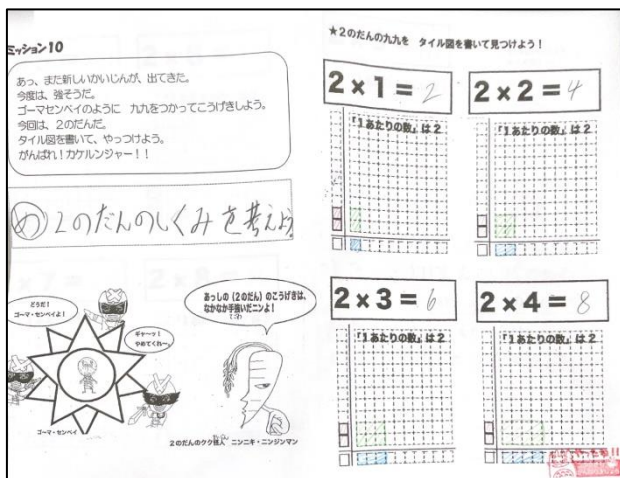 ミッション10
あっ、また新しいかいじんが、出てきた。
今度は、強そうだ。
ゴーマセンベイのように 九九をつかってこうげきしよう。
今回は、2のだんだ。
タイル図を書いて、やっつけよう。
がんばれ!カケルンジャー!!
め 2のだんのしくみを考えよう
どうだ!
ゴーマ・センベイよ!
ギャーッ!
やめてくれ〜。
ゴーマ・センベイ
あっしの(2のだん)のこうげきは、
なかなか手強いだニンよ!
2のだんのクク怪人 ニンニキ・ニンジンマン
★2のだんの九九を タイル図を書いて見つけよう!
2×1= 2
「1あたりの数」は2
2×2= 4
「1あたりの数」は2
2×3= 6
「1あたりの数」は2
2×4= 8
「1あたりの数」は2